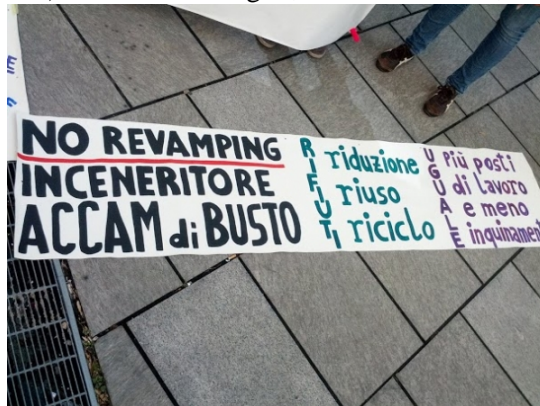 NO REVAMPING
INCENERITORE
ACCAM di BUSTO
RIFIUTI
riduzione
riuso
riciclo
UGUALE
più posti
di lavoro
e meno
inquinamen